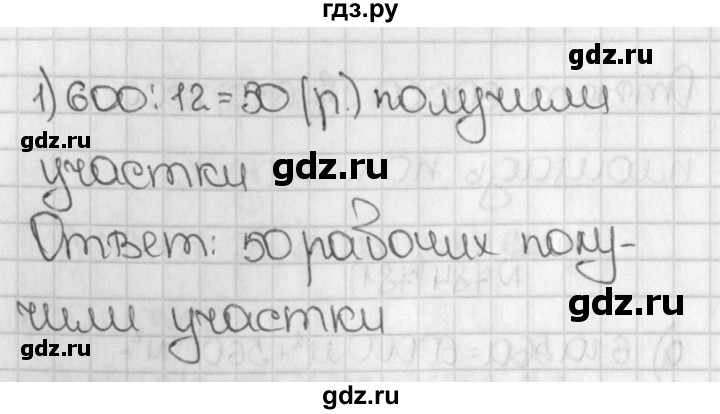 гдз.ру
gdz.ru
1) 600 : 12 = 50 (р.) получили
участки
gdz.ru
Ответ: 50 рабочих полу-
gdz.ru
чили участки
gdz.ru
gdz.ru